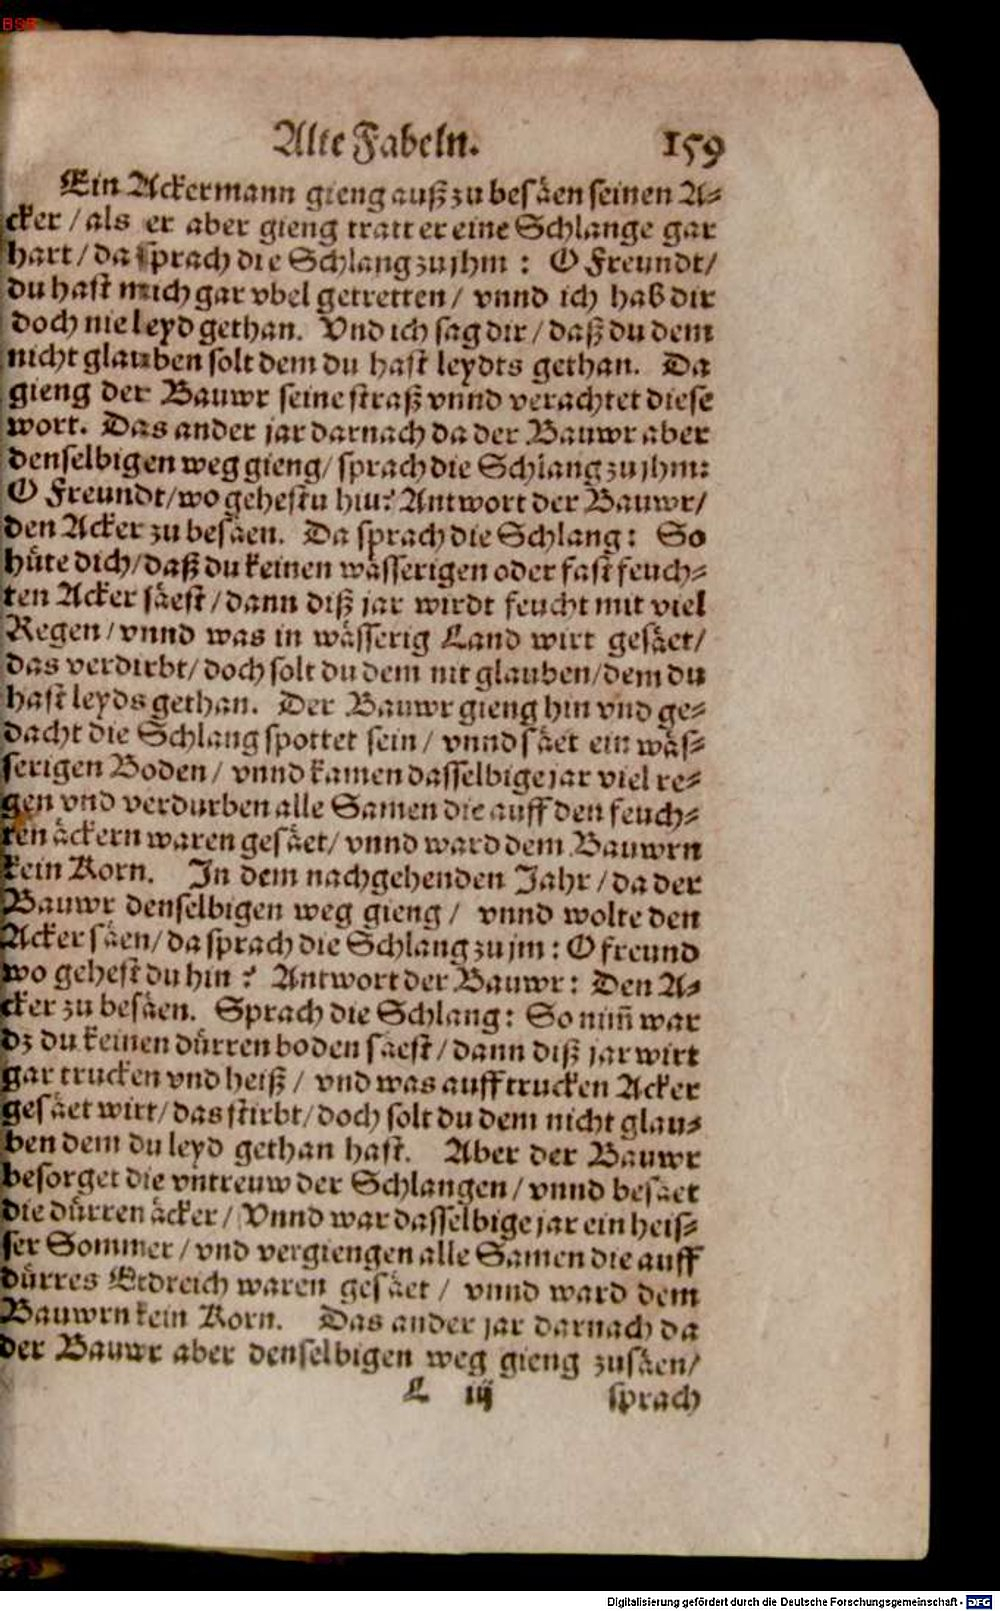 BSB
Alte Fabeln. 159
Ein Ackermann gieng auß zu besäen seinen A-
cker / als er aber gieng tratt er eine Schlange gar
hart / da sprach die Schlang zu jhm : O Freundt /
du hast mich gar vbel getretten / vnnd ich hab dir
doch nie leyd gethan. Vnd ich sag dir / daß du dem
nicht glauben solt dem du hast leydts gethan. Da
gieng der Bauwr seine straß vnnd verachtet diese
wort. Das ander jar darnach da der Bauwr aber
denselbigen weg gieng / sprach die Schlang zu jhm:
O Freundt / wo gehestu hin? Antwort der Bauwr /
den Acker zu besäen. Da sprach die Schlang : So
hüte dich / daß du keinen wässerigen oder fast feuch-
ten Acker säest / dann diß jar wirdt feucht mit viel
Regen / vnnd was in wässerig Land wirt gesäet /
das verdirbt / doch solt du dem nit glauben / dem du
hast leyds gethan. Der Bauwr gieng hin vnd ge-
dacht die Schlang spottet sein / vnnd säet ein wäs-
serigen Boden / vnnd kamen dasselbige jar viel re-
gen vnd verdurben alle Samen die auff den feuch-
ten äckern waren gesäet / vnnd ward dem Bauwrn
kein Korn. In dem nachgehenden Jahr / da der
Bauwr denselbigen weg gieng / vnnd wolte den
Acker säen / da sprach die Schlang zu jm : O freund
wo gehest du hin ? Antwort der Bauwr : Den A-
cker zu besäen. Sprach die Schlang : So nim̃ war
dz du keinen dürren boden säest / dann diß jar wirt
gar trucken vnd heiß / vnd was auff trucken Acker
gesäet wirt / das stirbt / doch solt du dem nicht glau-
ben dem du leyd gethan hast. Aber der Bauwr
besorget die vntreuw der Schlangen / vnnd besäet
die dürren äcker / Vnnd war dasselbige jar ein heis-
ser Sommer / vnd vergiengen alle Samen die auff
dürres Erdreich waren gesäet / vnnd ward dem
Bauwrn kein Korn. Das ander jar darnach da
der Bauwr aber denselbigen weg gieng zusäen /
L iij sprach
Digitalisierung gefördert durch die Deutsche Forschungsgemeinschaft - DFG